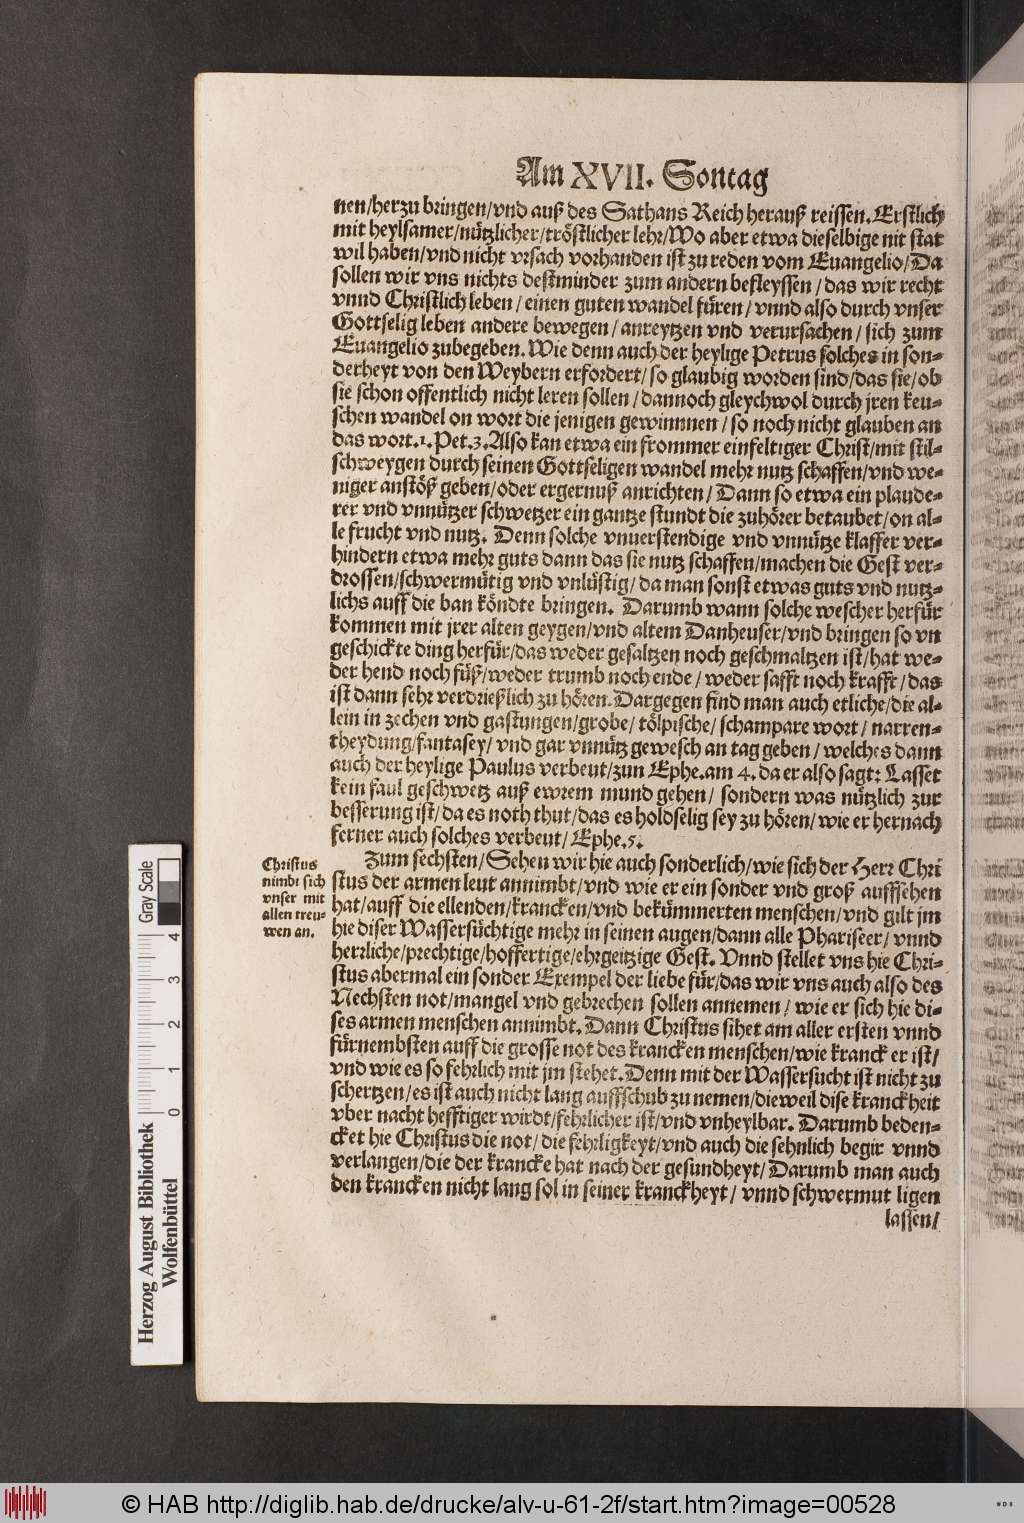 Am XVII. Sontag
nen/herzu bringen/vnd auß des Sathans Reich herauß reissen. Erstlich
mit heylsamer/nützlicher/tröstlicher lehr/Wo aber etwa dieselbige nit stat
wil haben/vnd nicht vrsach vorhanden ist zu reden vom Euangelio/Da
sollen wir vns nichts destminder zum andern befleyssen/das wir recht
vnnd Christlich leben/einen guten wandel füren/vnnd also durch vnser
Gottselig leben andere bewegen/anreytzen vnd verursachen/sich zum
Euangelio zubegeben. Wie denn auch der heylige Petrus solches in son-
derheyt von den Weybern erfordert/so glaubig worden sind/das sie/ob
sie schon offentlich nicht leren sollen/dannoch gleychwol durch jren keu-
schen wandel on wort die jenigen gewinnen/so noch nicht glauben an
das wort.1.Pet.3. Also kan etwa ein frommer einfeltiger Christ/mit stil-
schweygen durch seinen Gottseligen wandel mehr nutz schaffen/vnd we-
niger anstöß geben/oder ergernuß anrichten/Dann so etwa ein plaude-
rer vnd vnnützer schwetzer ein gantze stundt die zuhörer betaubet/on al-
le frucht vnd nutz. Denn solche vnuerstendige vnd vnnütze klaffer ver-
hindern etwa mehr guts dann das sie nutz schaffen/machen die Gest ver-
drossen/schwermütig vnd vnlüstig/da man sonst etwas guts vnd nutz-
lichs auff die ban köndte bringen. Darumb wann solche wescher herfür
kommen mit jrer alten geygen/vnd altem Danheuser/vnd bringen so vn
geschickte ding herfür/das weder gesaltzen noch geschmaltzen ist/hat we-
der hend noch füß/weder trumb noch ende/weder safft noch krafft/das
ist dann sehr verdrießlich zu hören. Dargegen find man auch etliche/die al-
lein in zechen vnd gastungen/grobe/tölpische/schampare wort/narren-
theydung/fantasey/vnd gar vnnütz gewesch an tag geben/welches dann
auch der heylige Paulus verbeut/zun Ephe.am 4. da er also sagt: Lasset
kein faul geschwetz auß ewrem mund gehen/sondern was nützlich zur
besserung ist/da es noth thut/das es holdselig sey zu hören/wie er hernach
ferner auch solches verbeut/Ephe.5.
Zum sechsten/Sehen wir hie auch sonderlich/wie sich der Herr Chri
stus der armen leut annimbt/vnd wie er ein sonder vnd groß auffsehen
hat/auff die ellenden/krancken/vnd bekümmerten menschen/vnd gilt jm
hie diser Wassersüchtige mehr in seinen augen/dann alle Phariseer/vnnd
herrliche/prechtige/hoffertige/ehrgeitzige Gest. Vnnd stellet vns hie Chri-
stus abermal ein sonder Exempel der liebe für/das wir vns auch also des
Nechsten not/mangel vnd gebrechen sollen annemen/wie er sich hie di-
ses armen menschen annimbt. Dann Christus sihet am aller ersten vnnd
fürnembsten auff die grosse not des krancken menschen/wie kranck er ist/
vnd wie es so fehrlich mit jm stehet. Denn mit der Wassersucht ist nicht zu
schertzen/es ist auch nicht lang auffschub zu nemen/dieweil dise kranckheit
vber nacht hefftiger wirdt/fehrlicher ist/vnd vnheylbar. Darumb beden-
cket hie Christus die not/die fehrligkeyt/vnd auch die sehnlich begir vnnd
verlangen/die der krancke hat nach der gesundheyt/Darumb man auch
den krancken nicht lang sol in seiner kranckheyt/vnnd schwermut ligen
lassen/
Christus
nimbt sich
vnser mit
allen treu-
wen an.
Gray Scale
0 1 2 3 4
Herzog August Bibliothek
Wolfenbüttel
© HAB http://diglib.hab.de/drucke/alv-u-61-2f/start.htm?image=00528